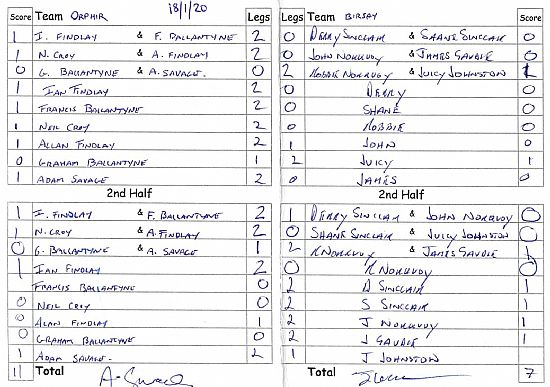 Score Team ORPHIR 18/1/20 Legs Legs Team BIRSAY Score
1 I. FINDLAY & F. BALLANTYNE 2 0 DERRY SINCLAIR & SHANE SINCLAIR 0
1 N. CROY & A. FINDLAY 2 0 JOHN NORQUOY & JAMES GAUDIE 0
0 G. BALLANTYNE & A. SAVAGE. 0 2 ROBBIE NORQUOY & JUICY JOHNSTON 1
1 IAN FINDLAY 2 0 DERRY 0
1 FRANCIS BALLANTYNE 2 0 SHANE 0
1 NEIL CROY 2 0 ROBBIE 0
1 ALLAN FINDLAY 2 1 JOHN 0
0 GRAHAM BALLANTYNE 1 2 JUICY 1
1 ADAM SAVAGE 2 0 JAMES 0
2nd Half 2nd Half
1 I. FINDLAY & F. BALLANTYNE 2 1 DERRY SINCLAIR & JOHN NORQUOY 0
1 N. CROY & A. FINDLAY 2 0 SHANE SINCLAIR & JUICY JOHNSTON 0
0 G. BALLANTYNE & A SAVAGE 1 2 R NORQUOY & JAMES GAUDIE 1
1 IAN FINDLAY 2 0 R NORQUOY 0
FRANCIS BALLANTYNE 0 2 D SINCLAIR 1
0 NEIL CROY 0 2 S SINCLAIR 1
0 ALAN FINDLAY 1 2 J NORQUOY 1
0 GRAHAM BALLANTYNE 0 2 J GAUDIE 1
1 ADAM SAVAGE. 2 1 J JOHNSTON
11 Total Total 7